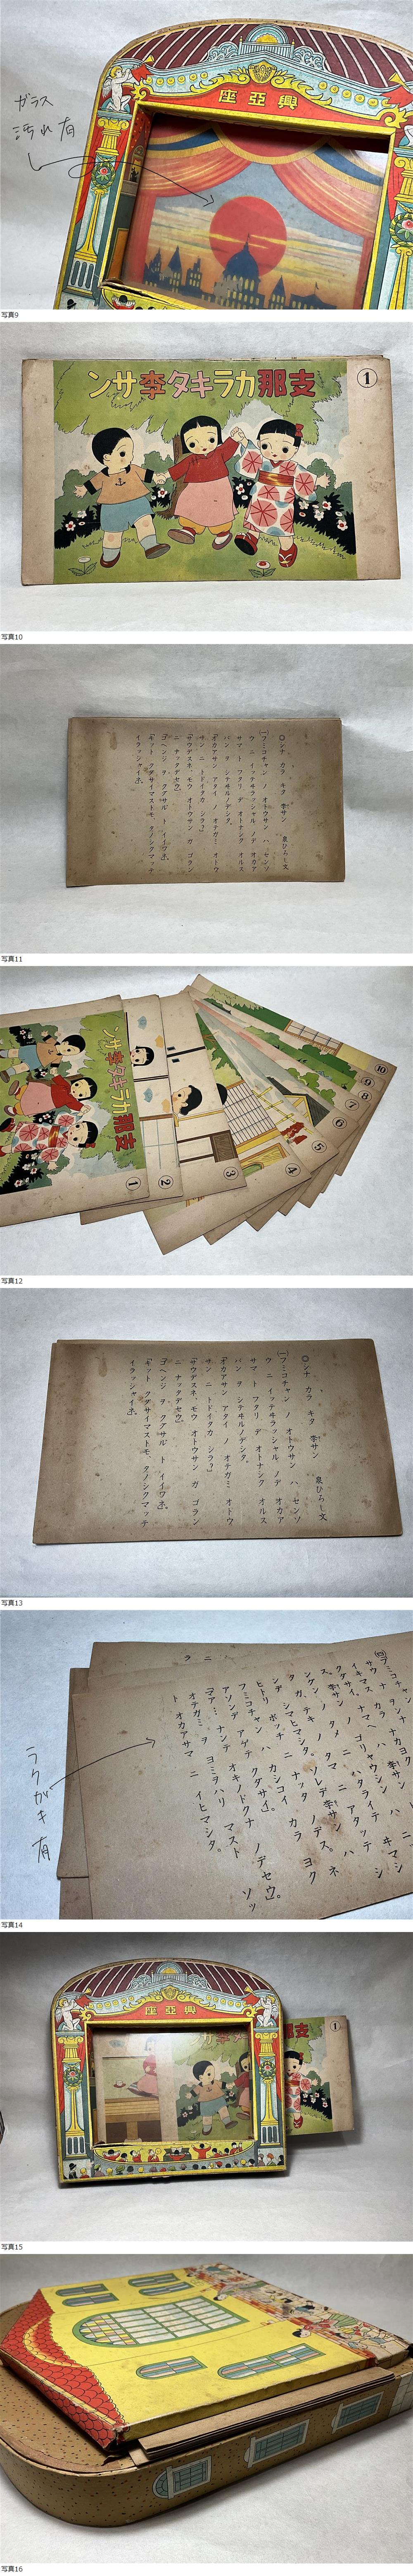 ガラス
汚れ有
座亞興
写真9
ンサ李タキラカ那支
①
写真10
◎シナ カラ キタ 李サン 泉ひろし文
(一)フミコチャン ノ オトウサン ハ センソ
ウ ニ イッテヰラッシャル ノデ オカア
サマ ト フタリ デ オトナシク オルス
バン ヲ シテヰルノデシタ。
「オカアサン アタイ ノ オテガミ オトウ
サン ニ トドイタカ シラ?」
「サウデスネ、モウ オトウサン ガ ゴラン
ニ ナッタデセウ」
「ゴヘンジ ヲ クダサル ト イイワネ」
「キット クダサイマストモ、タノシクマッテ
イラッシャイネ」
写真11
ンサ李タキラカ那支
①
②
③
④
⑤
⑥
⑦
⑧
⑨
⑩
写真12
◎シナ カラ キタ 李サン 泉ひろし文
(一)フミコチャン ノ オトウサン ハ センソ
ウ ニ イッテヰラッシャル ノデ オカア
サマ ト フタリ デ オトナシク オルス
バン ヲ シテヰルノデシタ。
「オカアサン アタイ ノ オテガミ オトウ
サン ニ トドイタカ シラ?」
「サウデスネ、モウ オトウサン ガ ゴラン
ニ ナッタデセウ」
「ゴヘンジ ヲ クダサル ト イイワネ」
「キット クダサイマストモ、タノシクマッテ
イラッシャイネ」
写真13
フミコチャン
アソンデ アゲテ クダサイ」
「マア… ナンテ オキノドクナ ノデセウ」
オテガミ ヲ ヨミヲハリ マスト
ト オカアサマ ニ イヒマシタ。
ラクガキ有
写真14
座亞興
①
写真15
写真16